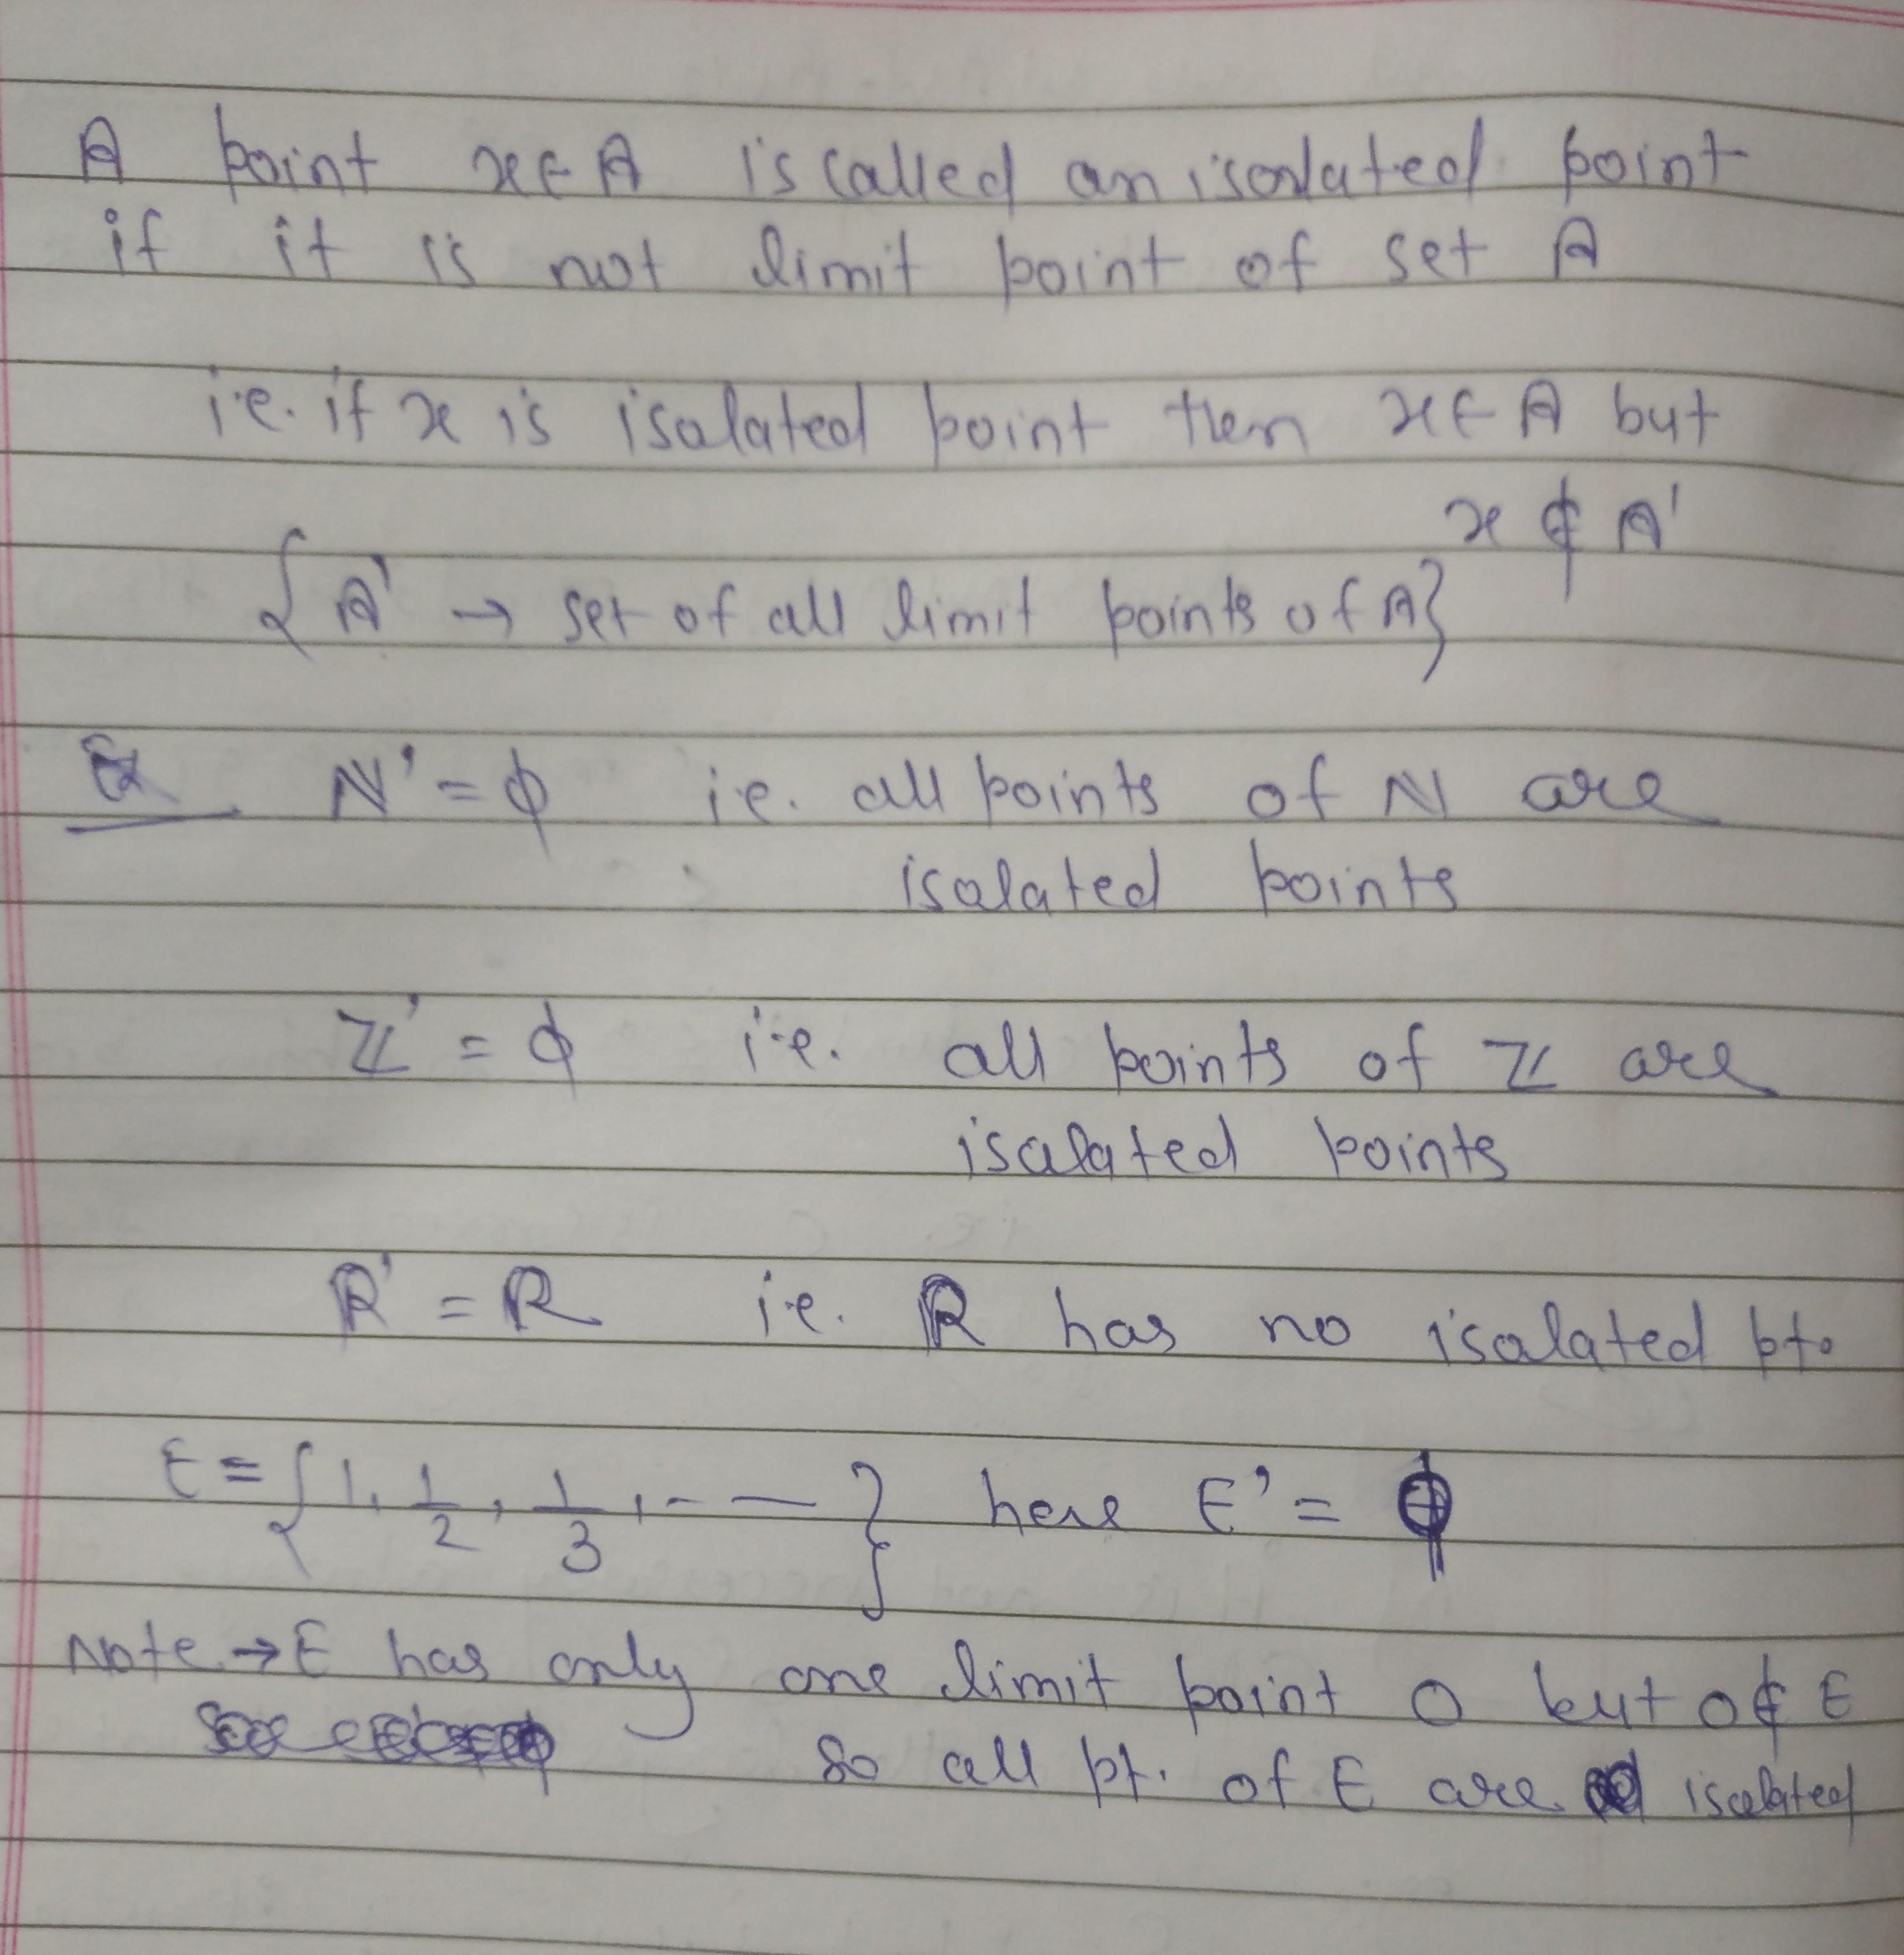 A point x ∈ A is called an isolated point
if it is not limit point of set A
i.e. if x is isolated point then x ∈ A but
x ∉ A'
{A' → set of all limit points of A}
Ex N' = ϕ i.e. all points of N are
isolated points
Z' = ϕ i.e. all points of Z are
isolated points
R' = R i.e. R has no isolated pt.
E = {1, 1/2, 1/3, - - — } here E' = ϕ
Note → E has only one limit point 0 but 0 ∉ E
So all pt. of E are isolated